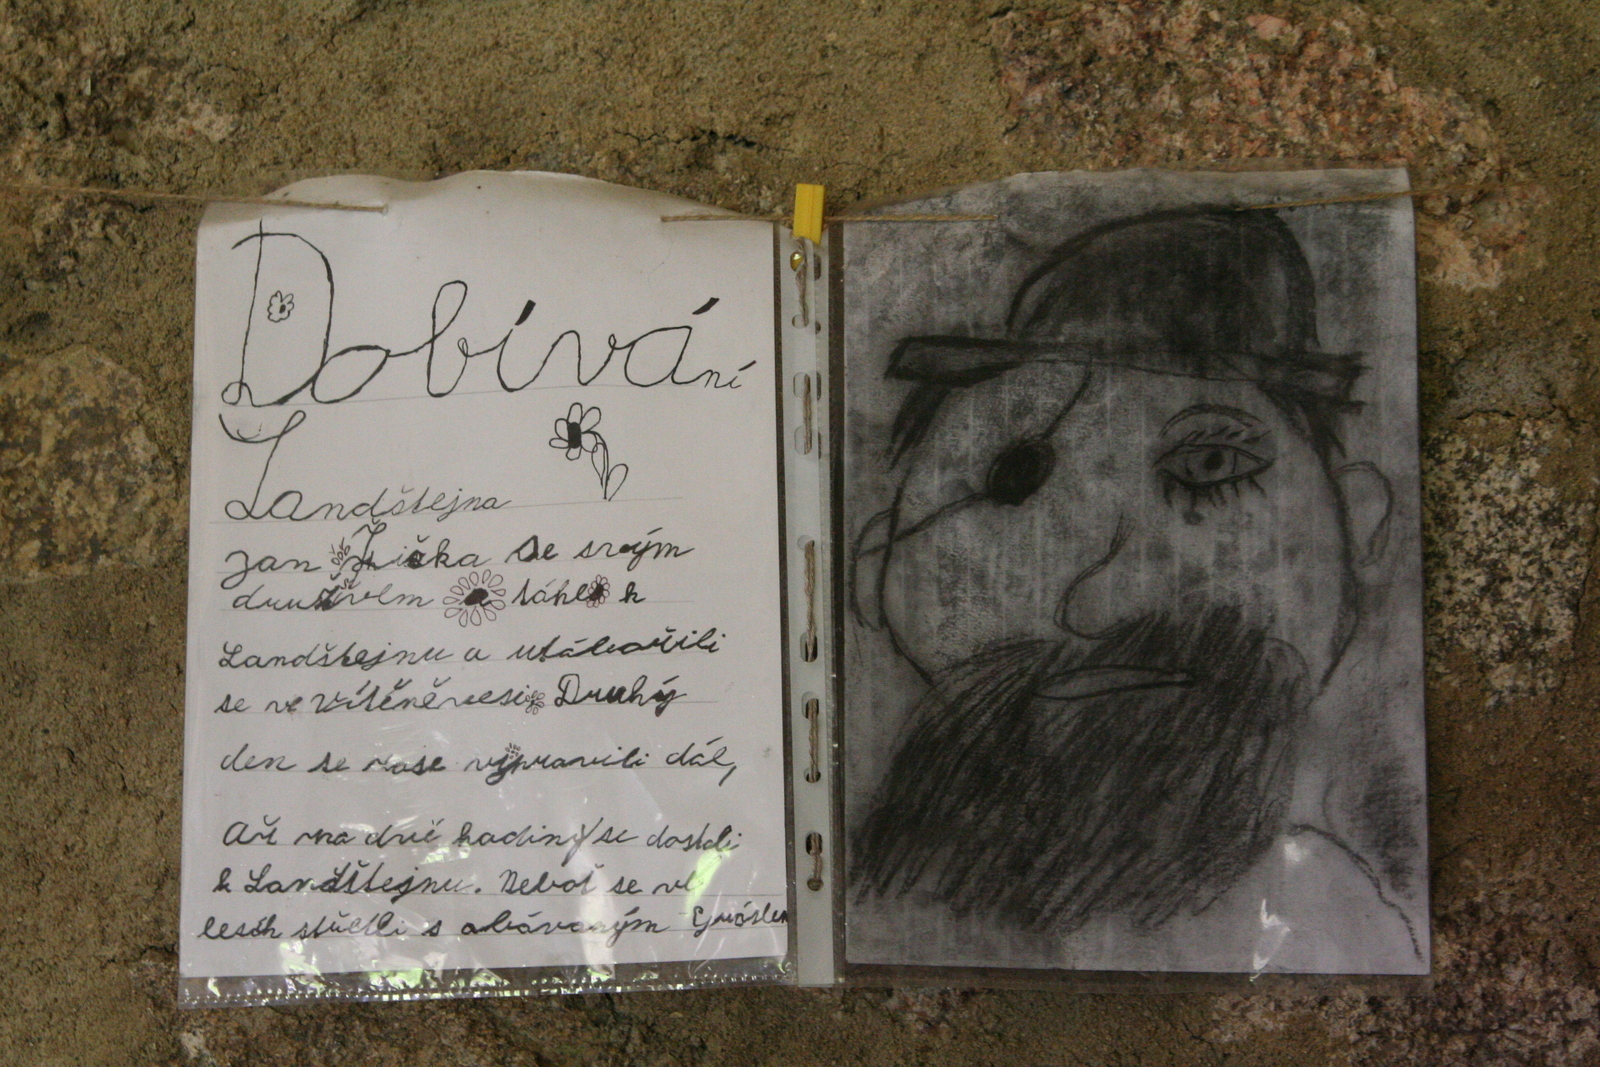 Dobívání
Landštejna
Jan Žižka se svým
družstvem táhl k
Landštejnu a utábořili
se ve Vítěněvesi Druhý
den se zase vypravili dál,
Až na dvě hodiny se dostali
k Landštejnu. Neboť se v
lesích střetli s obávaným